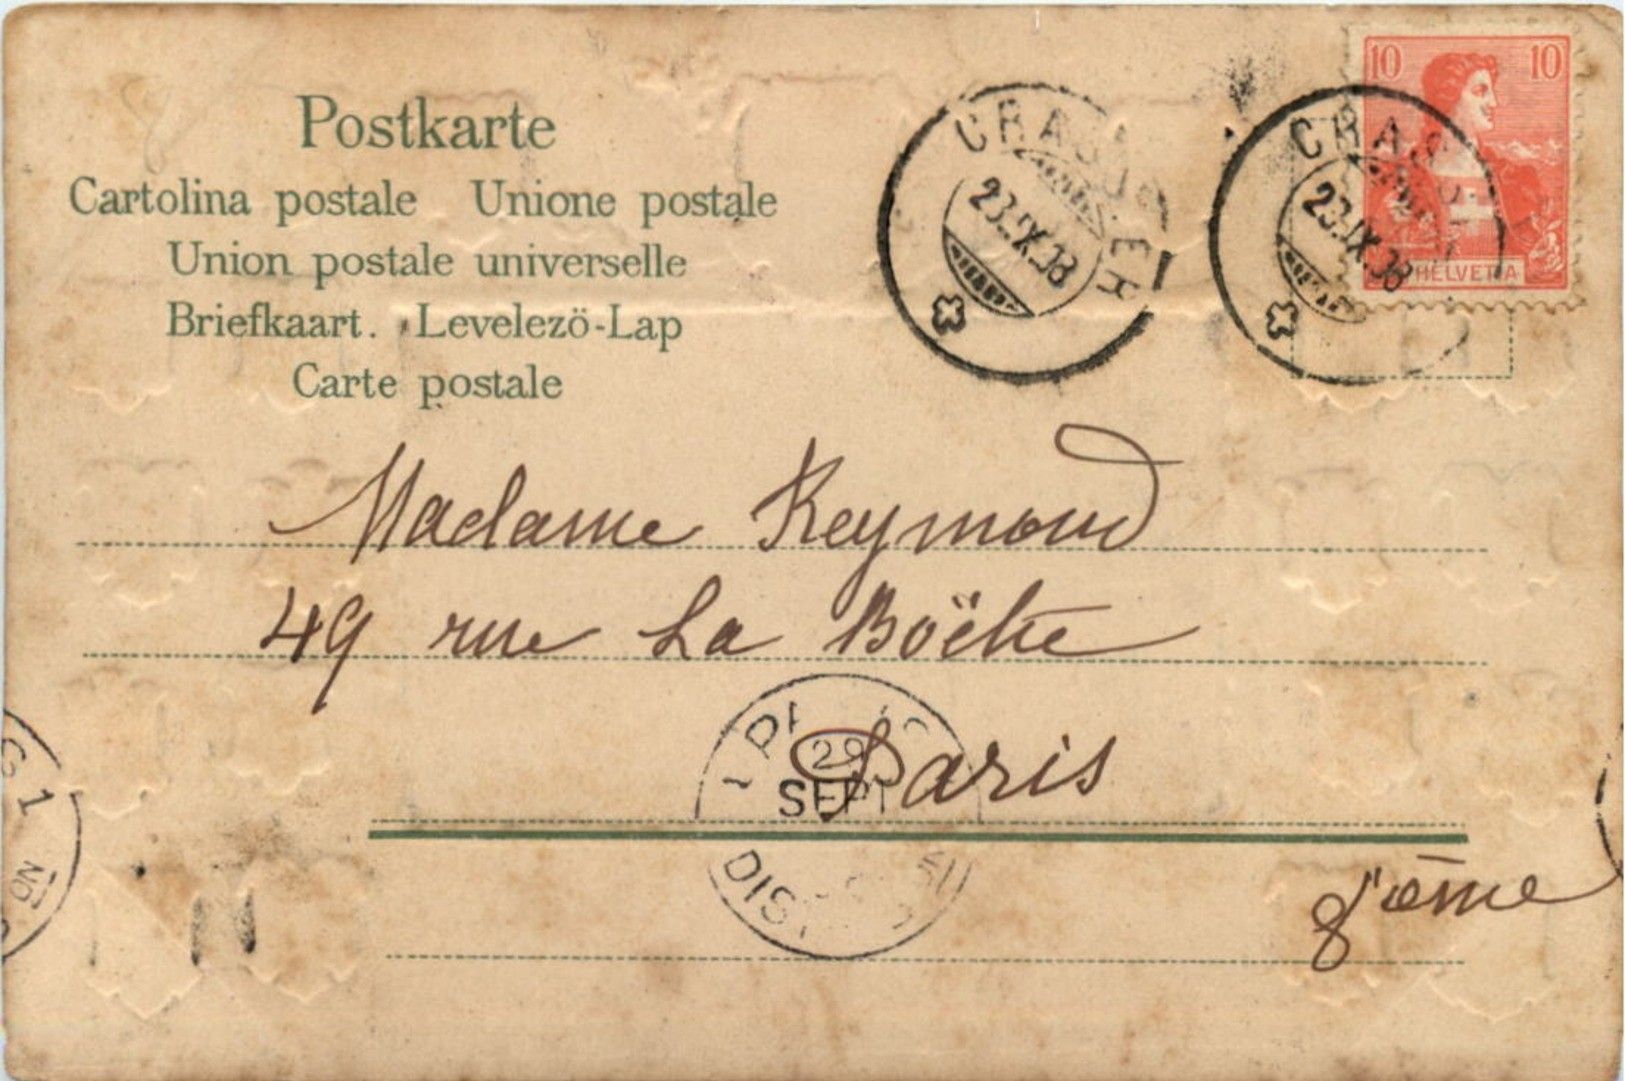 Postkarte
Cartolina postale Unione postale
Union postale universelle
Briefkaart. Levelezö-Lap
Carte postale
10 10
HELVETIA
23.IX.08
23.IX.08
Madame Reymond
49 rue La Boëtie
Paris
29
SEPT
8ième